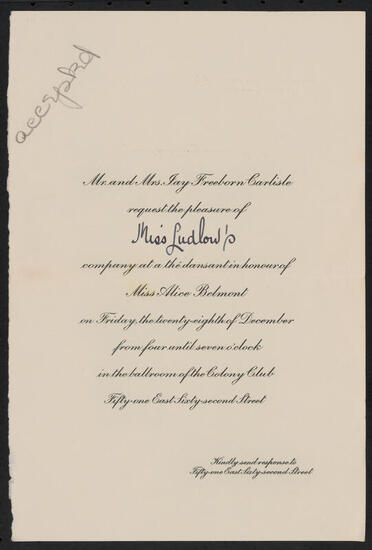 accepted
Mr. and Mrs. Jay Freeborn Carlisle
request the pleasure of
Miss Ludlow's
company at a thé dansant in honour of
Miss Alice Belmont
on Friday, the twenty-eighth of December
from four until seven o'clock
in the ballroom of the Colony Club
Fifty-one East Sixty-second Street
Kindly send response to
Fifty-one East Sixty-second Street